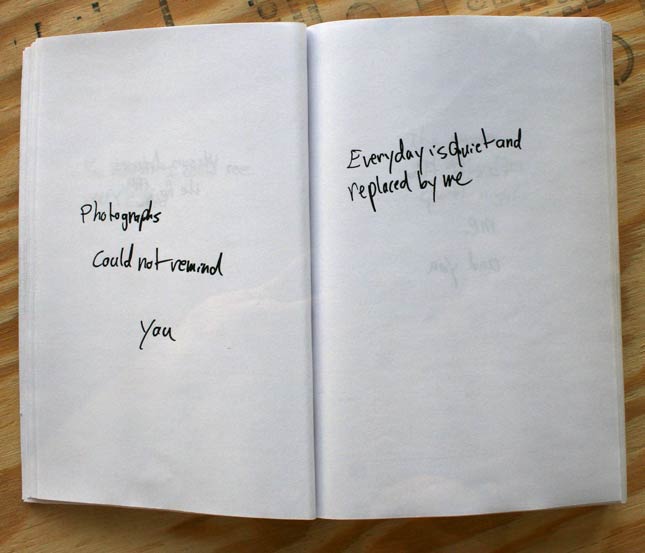 Photographs
Could not remind
You
Everyday is Quiet and
replaced by me